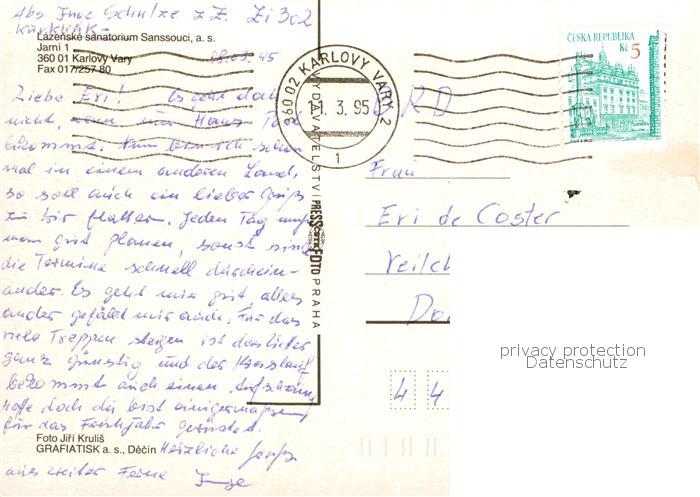 Abs Inge Schulze z.Z. Zi 302
Kurklinik -
Lázeňské sanatorium Sanssouci, a. s.
Jarní 1
360 01 Karlovy Vary
Fax 017/257 80
08.03.95
Liebe Eri! Es geht doch
nicht, wenn nur Hans Post
bekommt. Nun bin ich schon
mal in einem anderen Land,
so soll auch ein lieber Gruß
zu dir flattern. Jeden Tag muß
man gut planen, sonst sind
die Termine schnell durchein-
ander. Es geht mir gut, alles
andere gefällt mir auch. Für das
viele Treppen steigen ist das Wetter
ganz günstig und der Kreislauf
bekommt auch einen Aufschwung
Hoffe doch du bist einigermaßen
für das Frühjahr gerüstet.
Herzliche Grüße
aus weiter Ferne Inge
Foto Jiří Kruliš
GRAFIATISK a. s., Děčín
VYDAVATELSTVÍ PRESSFOTO PRAHA
360 02 KARLOVY VARY 2
11. 3. 95
1
ČESKÁ REPUBLIKA
Kč 5
BRD
Frau
Eri de Coster
Veilch
Do
4 4
privacy protection
Datenschutz